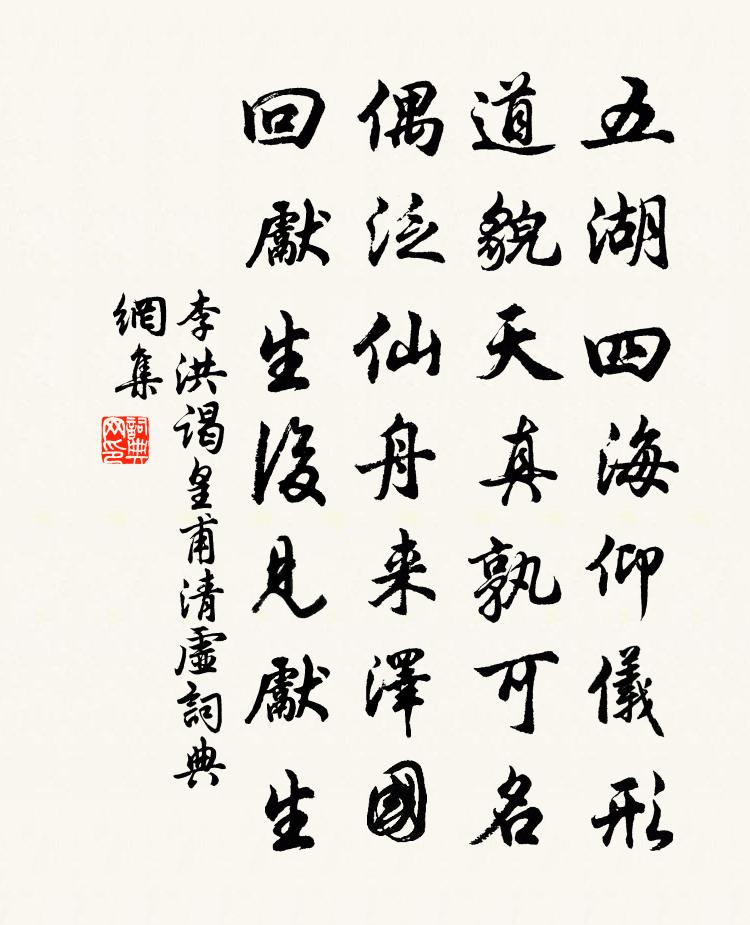 五湖四海仰儀形
道貌天真孰可名
偶泛仙舟来澤國
回獻生後見獻生
李洪謁皇甫清虛詞典
網集
詞典
网印